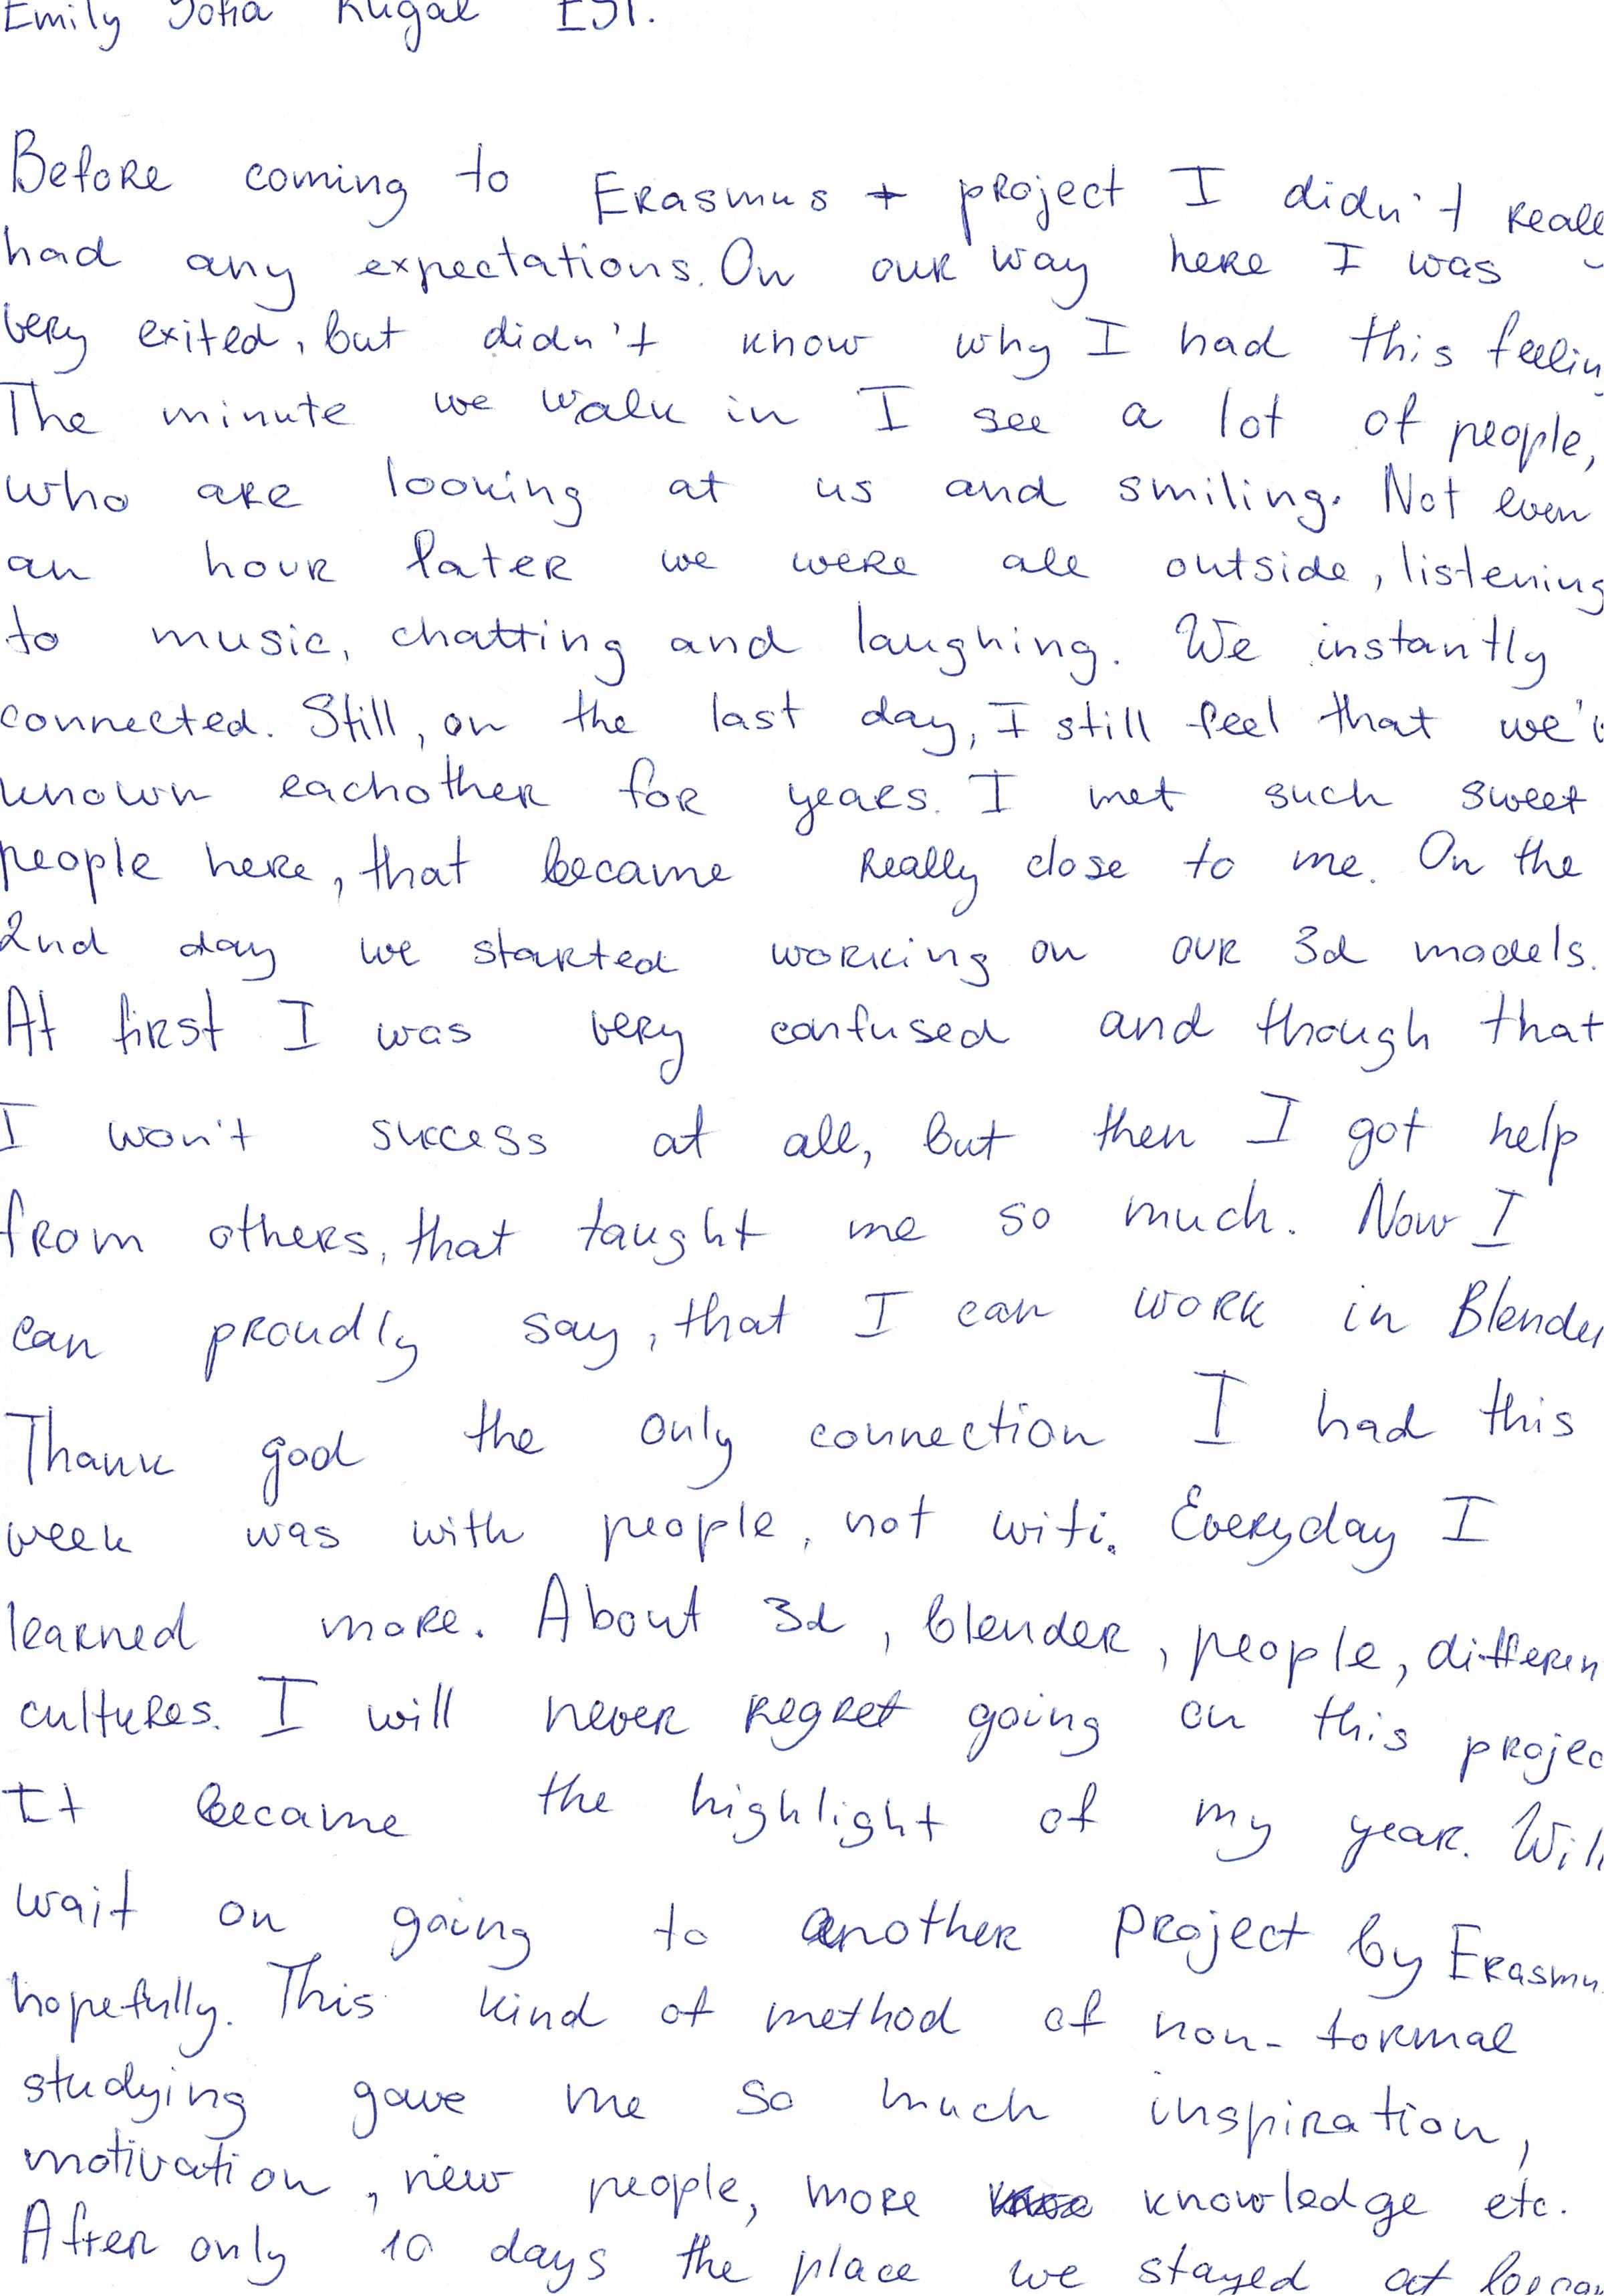 Emily Sofia Kugal EST.
Before coming to Erasmus + project I didn't reall
had any expectations. On our way here I was
very exited, but didn't know why I had this feelin
The minute we walk in I see a lot of people,
who are looking at us and smiling. Not even
an hour later we were all outside, listening
to music, chatting and laughing. We instantly
connected. Still, on the last day, I still feel that we'v
known eachother for years. I met such sweet
people here, that became really close to me. On the
2nd day we started working on our 3d models.
At first I was very confused and though that
I won't success at all, but then I got help
from others, that taught me so much. Now I
can proudly say, that I can work in Blender
Thank god the only connection I had this
week was with people, not wifi. Everyday I
learned more. About 3d, blender, people, differen
cultures. I will never regret going on this projec
It became the highlight of my year. Will
wait on going to another project by Erasmu
hopefully. This kind of method of non-formal
studying gave me so much inspiration,
motivation, new people, more knowledge etc.
After only 10 days the place we stayed at